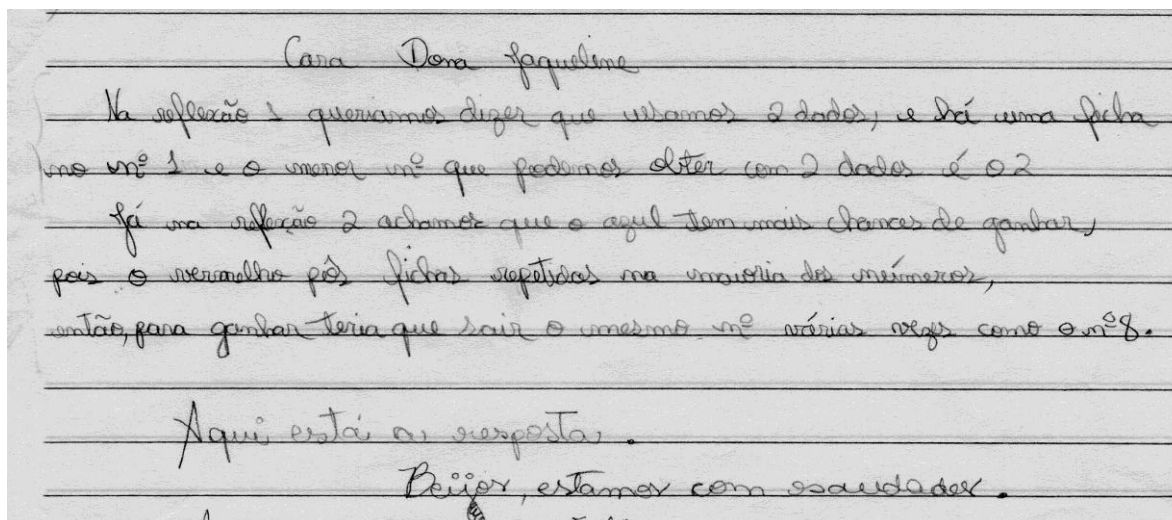 Cara Dona Jaqueline
Na reflexão 1 queriamos dizer que usamos 2 dados, e há uma ficha
no nº 1 e o menor nº que podemos obter com 2 dados é o 2
Já na refleção 2 achamos que o azul tem mais chances de ganhar,
pois o vermelho pôs fichas repetidas na maioria dos números,
então, para ganhar teria que sair o mesmo nº várias vezes como o nº 8.
Aqui está a resposta.
Beijos, estamos com saudades.